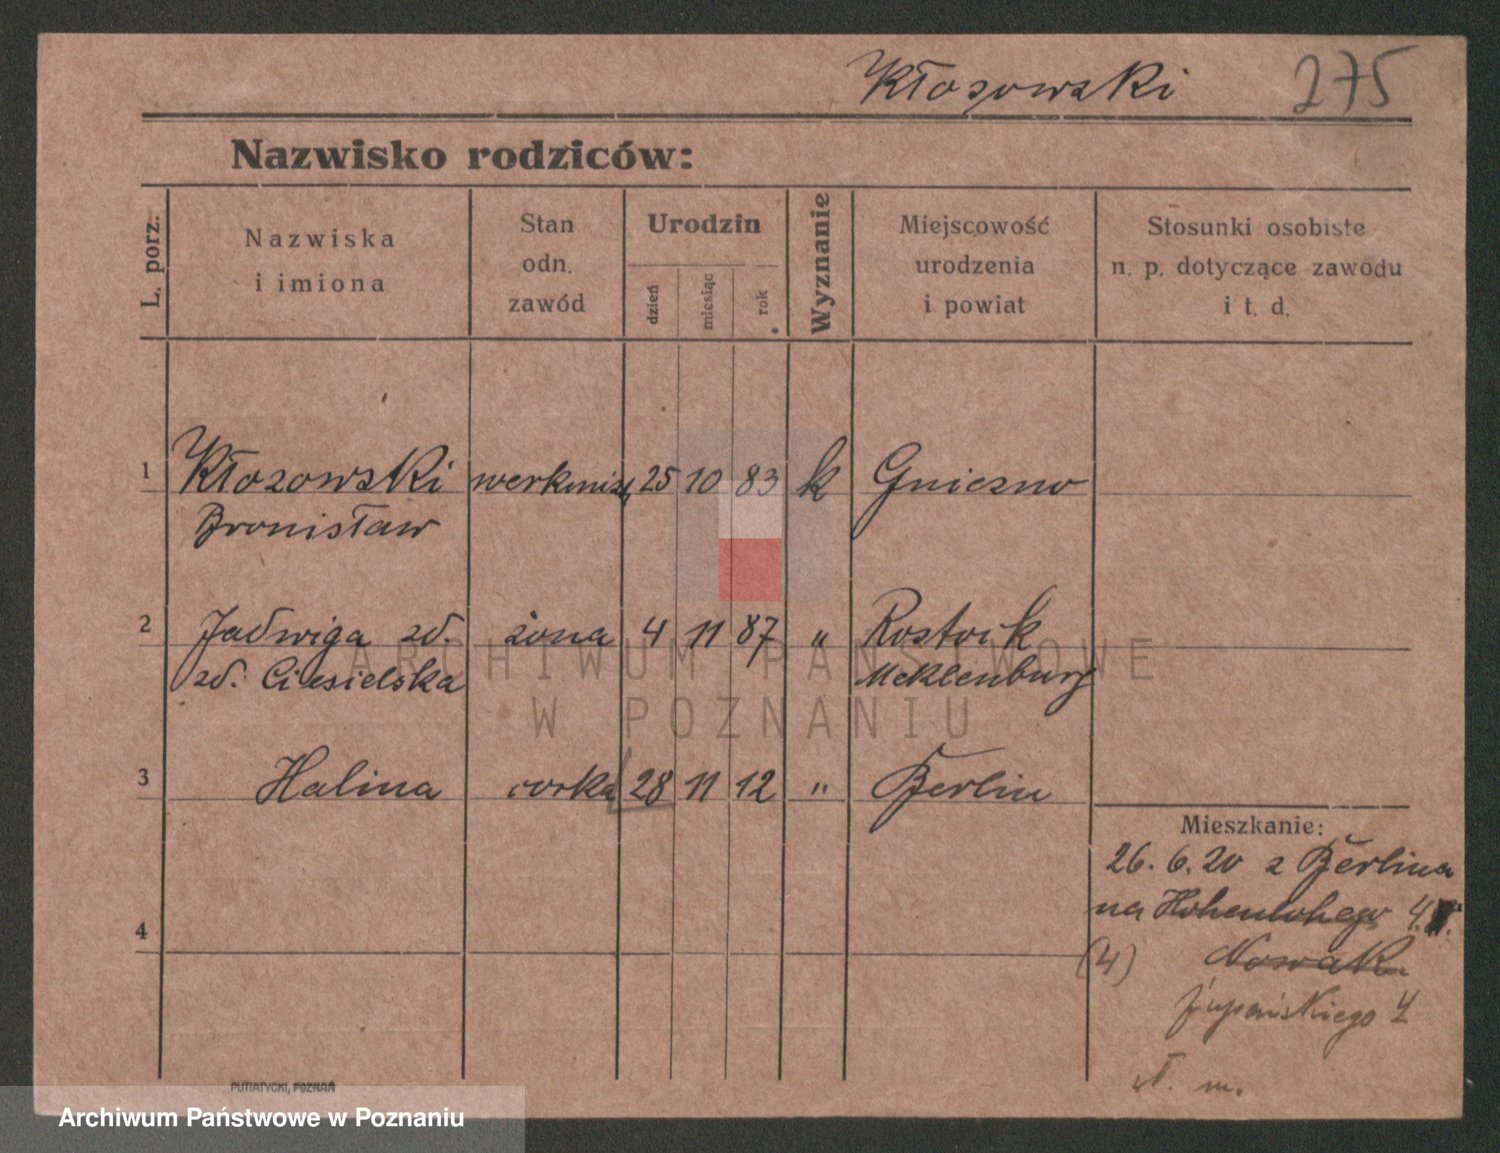 Kłosowski 275
Nazwisko rodziców:
L. porz.
Nazwiska
i imiona
Stan
odn.
zawód
Urodzin
dzień
miesiąc
rok
Wyznanie
Miejscowość
urodzenia
i powiat
Stosunki osobiste
n. p. dotyczące zawodu
i t. d.
1 Kłosowski werkmist 25 10 83 k Gniezno
Bronisław
2 Jadwiga zd. żona 4 11 87 " Rostock
zd. Ciesielska Meklenburg
3 Halina corka 28 11 12 " Berlin
Mieszkanie:
26.6.20 z Berlina
na Hohenlohego 4
4
(4) Nowak
Żupańskiego 4
w. m.
ARCHIWUM PAŃSTWOWE
W POZNANIU
PUTIATYCKI, POZNAŃ
Archiwum Państwowe w Poznaniu